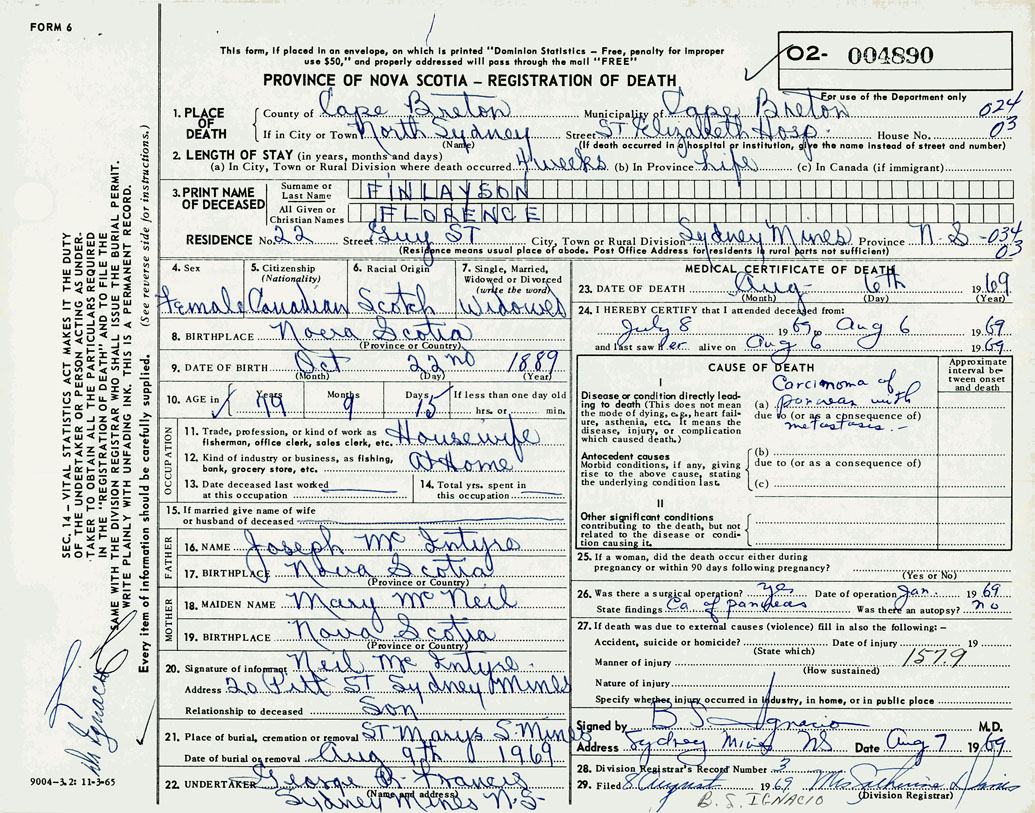 FORM 6
This form, if placed in an envelope, on which is printed "Dominion Statistics – Free, penalty for improper
use $50," and properly addressed will pass through the mail "FREE"
O2- 004890
PROVINCE OF NOVA SCOTIA – REGISTRATION OF DEATH
For use of the Department only
1. PLACE OF DEATH County of Cape Breton Municipality of Cape Breton 024
If in City or Town North Sydney Street St Elizabeth Hosp. House No. 03
(Name) (If death occurred in a hospital or institution, give the name instead of street and number)
2. LENGTH OF STAY (in years, months and days)
(a) In City, Town or Rural Division where death occurred 4 weeks (b) In Province Life (c) In Canada (if immigrant)
3. PRINT NAME OF DECEASED Surname or Last Name FINLAYSON
All Given or Christian Names FLORENCE
RESIDENCE No. 22 Street Guy ST City, Town or Rural Division Sydney Mines Province N.S -034
(Residence means usual place of abode. Post Office Address for residents in rural parts not sufficient) 03
4. Sex 5. Citizenship (Nationality) 6. Racial Origin 7. Single, Married, Widowed or Divorced (write the word)
Female Canadian Scotch Widowed
8. BIRTHPLACE Nova Scotia
(Province or Country)
9. DATE OF BIRTH Oct 22nd 1889
(Month) (Day) (Year)
10. AGE in Years Months Days If less than one day old
79 9 15 hrs. or min.
OCCUPATION
11. Trade, profession, or kind of work as fisherman, office clerk, sales clerk, etc. Housewife
12. Kind of industry or business, as fishing, bank, grocery store, etc. At Home
13. Date deceased last worked at this occupation 14. Total yrs. spent in this occupation
15. If married give name of wife or husband of deceased
FATHER
16. NAME Joseph Mc Intyre
17. BIRTHPLACE Nova Scotia
(Province or Country)
MOTHER
18. MAIDEN NAME Mary McNeil
19. BIRTHPLACE Nova Scotia
(Province or Country)
20. Signature of informant Neil Mc Intyre
Address 20 Pitt ST Sydney Mines
Relationship to deceased Son
21. Place of burial, cremation or removal ST Marys S. Mines
Date of burial or removal Aug 9th 1969
22. UNDERTAKER George D. Francis
(Name and address)
Sydney Mines N.S-
MEDICAL CERTIFICATE OF DEATH
23. DATE OF DEATH Aug 6th 1969
(Month) (Day) (Year)
24. I HEREBY CERTIFY that I attended deceased from:
July 8 1969 to Aug 6 1969
and last saw her alive on Aug 6 1969
CAUSE OF DEATH
Approximate interval between onset and death
I
Disease or condition directly leading to death (This does not mean the mode of dying, e.g., heart failure, asthenia, etc. It means the disease, injury, or complication which caused death.)
(a) Carcinoma of pancreas with metastasis.-
due to (or as a consequence of)
Antecedent causes
Morbid conditions, if any, giving rise to the above cause, stating the underlying condition last.
(b)
due to (or as a consequence of)
(c)
II
Other significant conditions
contributing to the death, but not related to the disease or condition causing it.
25. If a woman, did the death occur either during
pregnancy or within 90 days following pregnancy?
(Yes or No)
26. Was there a surgical operation? yes Date of operation Jan. 1969
State findings Ca of pancreas Was there an autopsy? no
27. If death was due to external causes (violence) fill in also the following: –
Accident, suicide or homicide? Date of injury 19
(State which) 157.9
Manner of injury
(How sustained)
Nature of injury
Specify whether injury occurred in industry, in home, or in public place
Signed by B S. Ignacio M.D.
Address Sydney Mines NS Date Aug 7 1969
28. Division Registrar's Record Number 3
29. Filed 8 August 1969
(Division Registrar)
B. S. IGNACIO
SEC. 14 – VITAL STATISTICS ACT MAKES IT THE DUTY
OF THE UNDERTAKER OR PERSON ACTING AS UNDER-
TAKER TO OBTAIN ALL THE PARTICULARS REQUIRED
IN THE "REGISTRATION OF DEATH" AND TO FILE THE
SAME WITH THE DIVISION REGISTRAR WHO SHALL ISSUE THE BURIAL PERMIT.
WRITE PLAINLY WITH UNFADING INK. THIS IS A PERMANENT RECORD.
Every item of information should be carefully supplied. (See reverse side for instructions.)
Ignacio
9004-3.2: 11-3-65